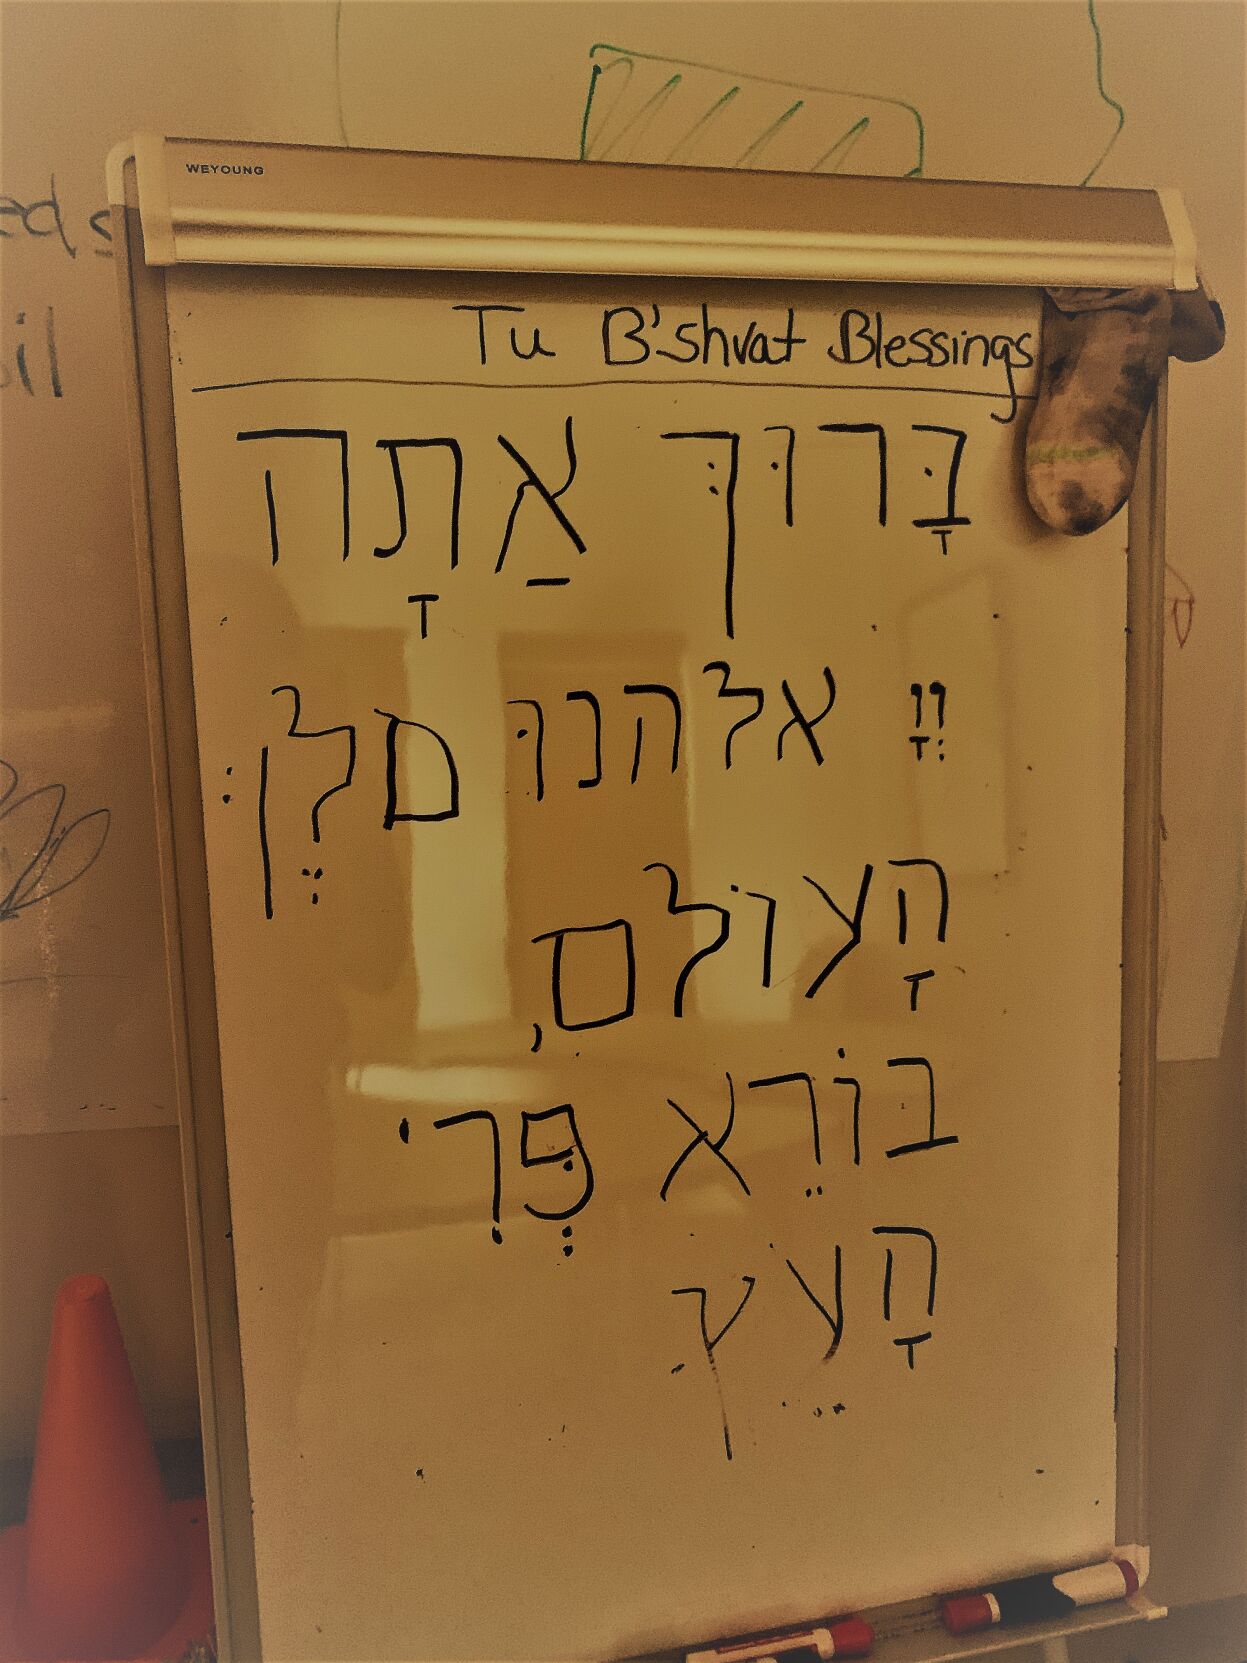 WEYOUNG
Tu B'shvat Blessings
בָּרוּךְ אַתָּה
יְיָ אלהנוּ םלֶן:
הָעולם,
בּוֹרֵא פְּרִי
הָעֵץ.